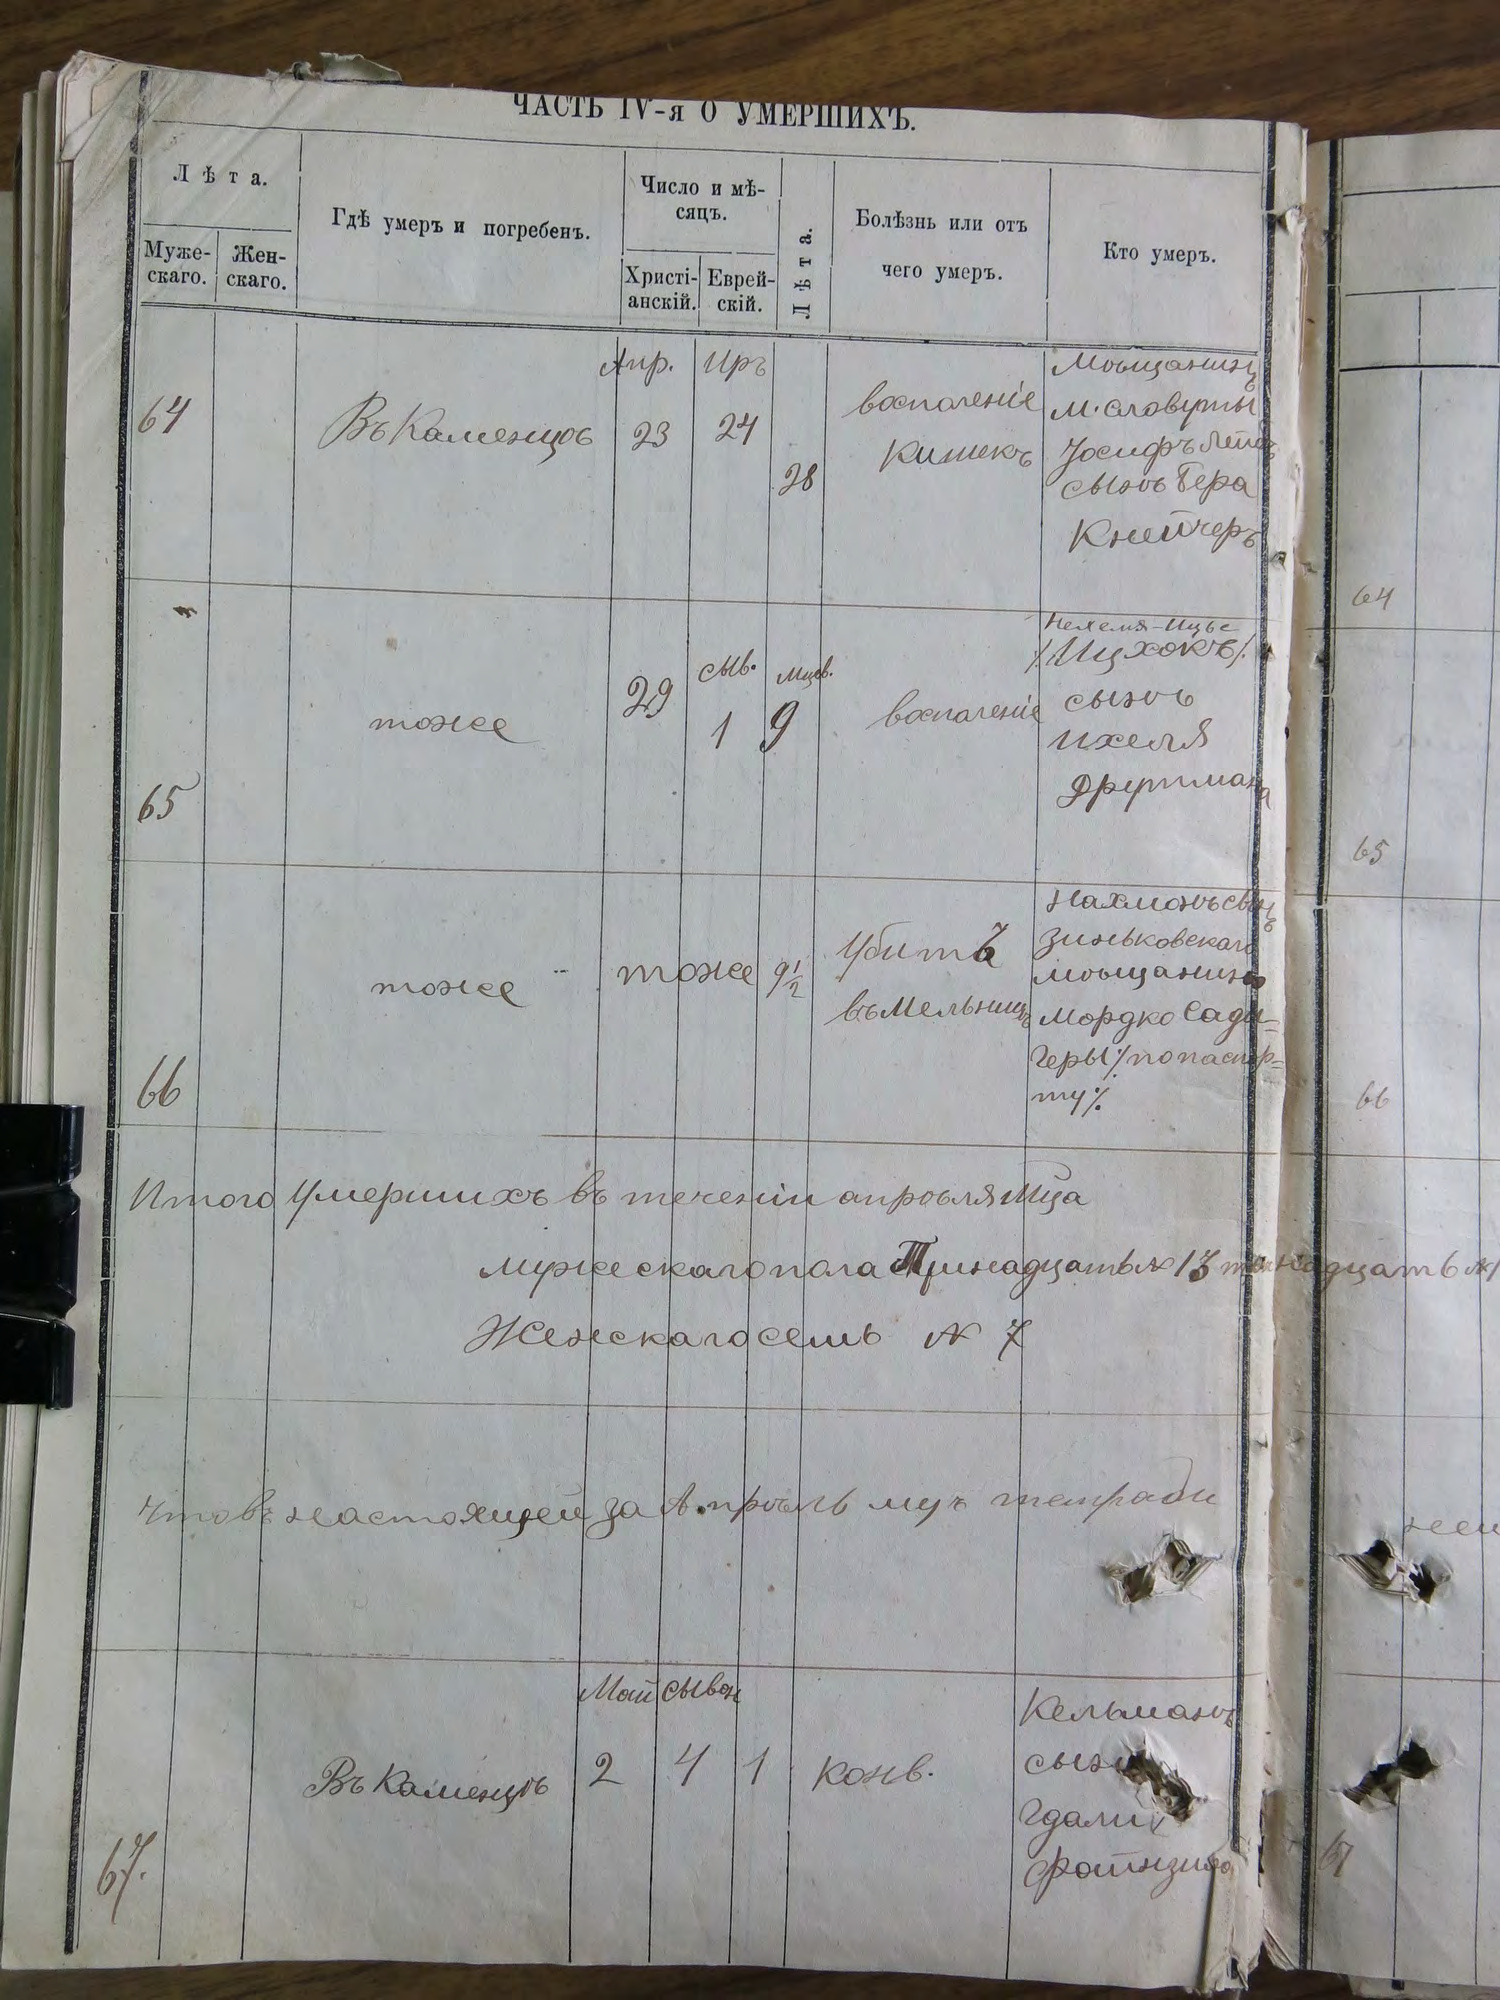 ЧАСТЬ IV-я О УМЕРШИХЪ.
Лѣта.
Муже-
скаго.
Жен-
скаго.
Гдѣ умеръ и погребенъ.
Число и мѣ-
сяцъ.
Христі-
анскій.
Еврей-
скій.
Лѣта.
Болѣзнь или отъ
чего умеръ.
Кто умеръ.
64
Въ Каменцѣ
Апр.
23
Иръ
24
28
воспаленіе
кишекъ
Мѣщанинъ
м. Славуты
Іосифъ Лейба
сынъ Бера
Кнейчеръ
65
тоже
29
сыв.
1
мцов.
9
воспаленіе
Нехемя-Ицье
/Ицхокъ/.
сынъ
Ихеля
Фрутмана
66
тоже
тоже
9 1/2
Убитъ
въ Мельницѣ
Нахманъ сынъ
Зиньковскаго
мѣщанина
Мордко Сади-
геры % по паспор-
ту %
Итого умершихъ въ теченіи апрѣля мца
мужескаго пола Тринадцать № 13 тринадцать №
Женскаго семь № 7
Что въ настоящей за Апрѣль мцъ тетради
67.
Въ Каменцѣ
Май
2
сыван
4
1
конв.
Кельманъ
сынъ
Гдалия
Файнзила
64
65
66
67